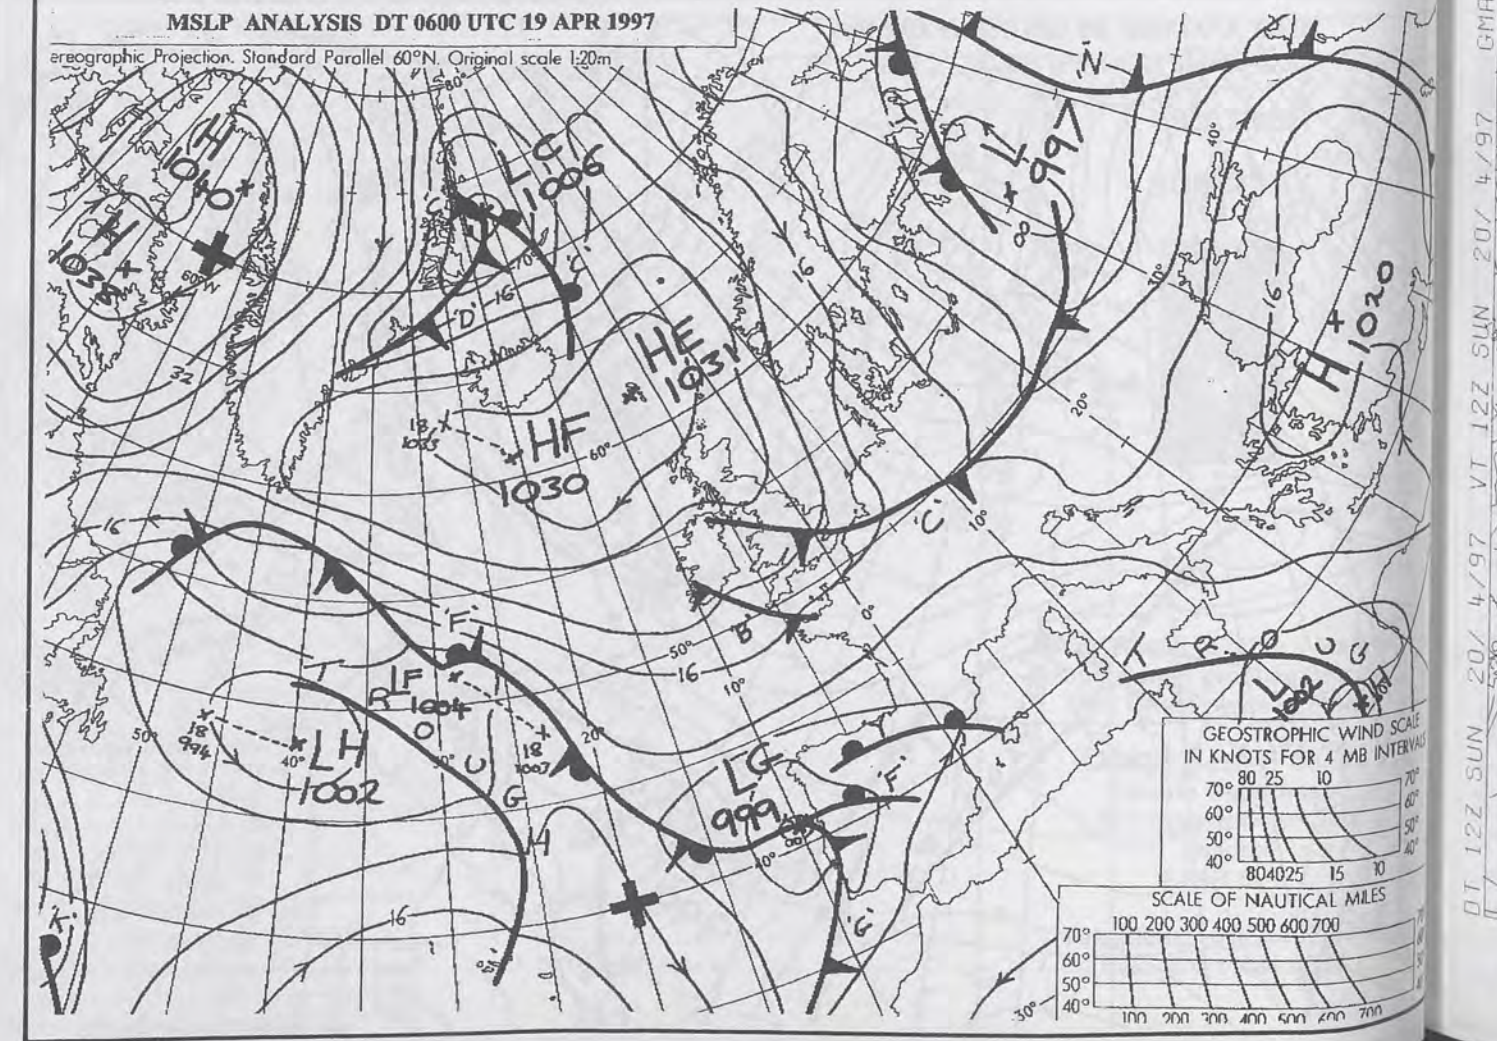 MSLP ANALYSIS DT 0600 UTC 19 APR 1997
ereographic Projection. Standard Parallel 60°N. Original scale 1:20m
80°
H
1040
H
1039
60°W
L C
1006
'C'
70°
16
'D'
32
HE
1031
18
1033
HF
1030
60°
16
'N'
L
997
8
40°
30°
16
H
1020
20°
'C'
10°
0°
16
'F'
50°
'B'
16
10°
T R O U G H
LF
1004
18
994
50°
40°
LH
1002
18
1007
20°
LG
999
'F'
40°
'G'
16
'K'
T R O U G
L
1002
30°
GEOSTROPHIC WIND SCALE
IN KNOTS FOR 4 MB INTERVALS
80 25 10
70° 70°
60° 60°
50° 50°
40° 40°
80 40 25 15 10
SCALE OF NAUTICAL MILES
100 200 300 400 500 600 700
70°
60°
50°
40°
100 200 300 400 500 600 700
DT 12Z SUN 20/ 4/97 VT 12Z SUN 20/ 4/97 GMA